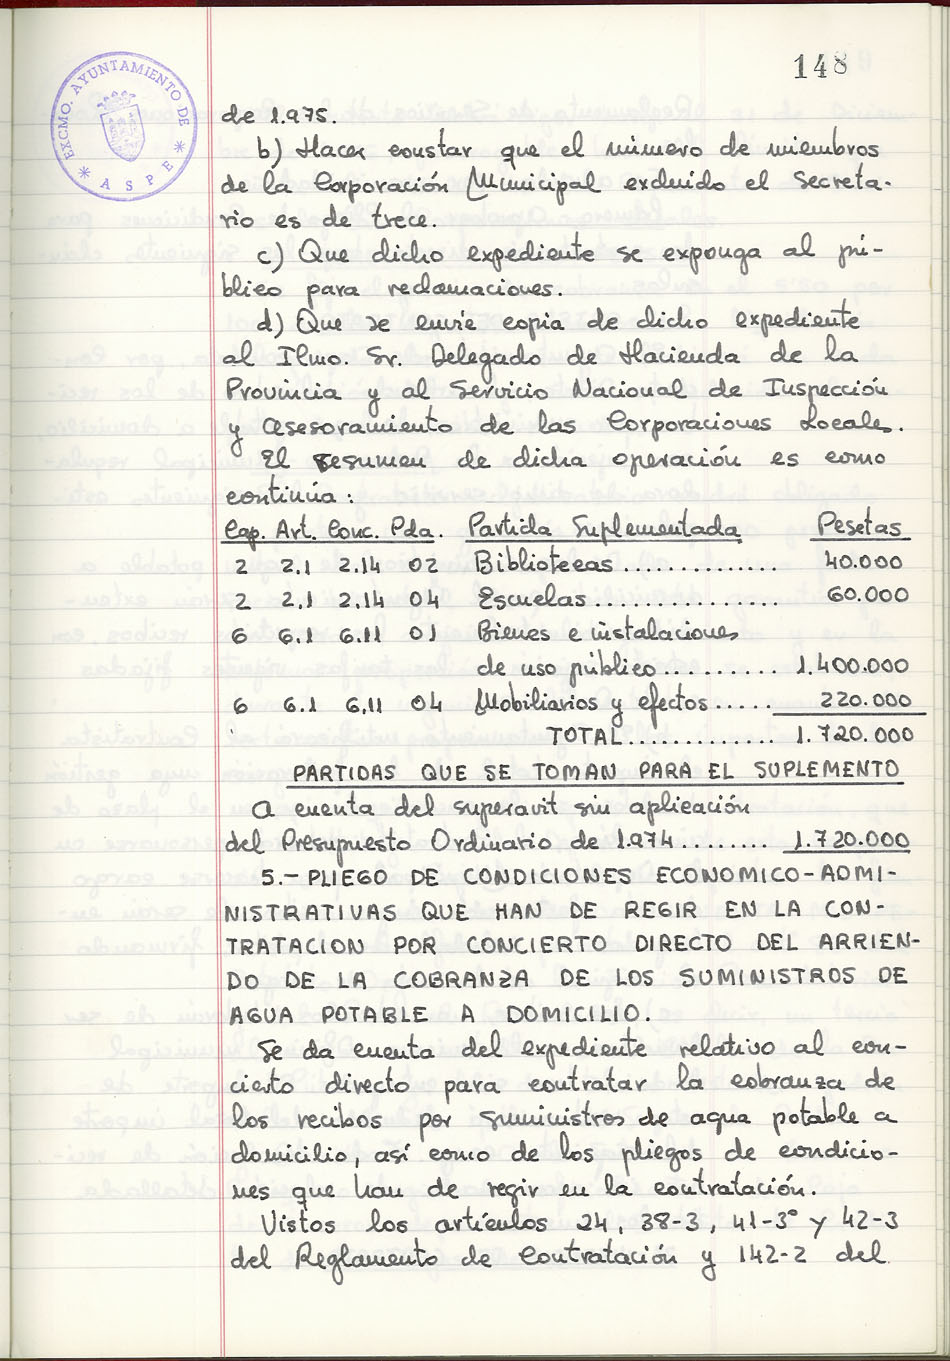 148
EXCMO. AYUNTAMIENTO DE
* ASPE *
de 1.975.
b) Hacer constar que el número de miembros
de la Corporación Municipal excluido el Secreta-
rio es de trece.
c) Que dicho expediente se exponga al pú-
blico para reclamaciones.
d) Que se envíe copia de dicho expediente
al Ilmo. Sr. Delegado de Hacienda de la
Provincia y al Servicio Nacional de Inspección
y Asesoramiento de las Corporaciones Locales.
El resumen de dicha operación es como
continúa:
Cap. Art. Conc. Pda. Partida Suplementada Pesetas
2 2.1 2.14 02 Bibliotecas.................. 40.000
2 2.1 2.14 04 Escuelas.................. 60.000
6 6.1 6.11 01 Bienes e instalaciones
de uso público.......... 1.400.000
6 6.1 6.11 04 Mobiliarios y efectos..... 220.000
TOTAL............. 1.720.000
PARTIDAS QUE SE TOMAN PARA EL SUPLEMENTO
A cuenta del superavit sin aplicación
del Presupuesto Ordinario de 1.974........ 1.720.000
5.- PLIEGO DE CONDICIONES ECONOMICO-ADMI-
NISTRATIVAS QUE HAN DE REGIR EN LA CON-
TRATACION POR CONCIERTO DIRECTO DEL ARRIEN-
DO DE LA COBRANZA DE LOS SUMINISTROS DE
AGUA POTABLE A DOMICILIO.
Se da cuenta del expediente relativo al con-
cierto directo para contratar la cobranza de
los recibos por suministros de agua potable a
domicilio, así como de los pliegos de condicio-
nes que han de regir en la contratación.
Vistos los artículos 24, 38-3, 41-3º y 42-3
del Reglamento de Contratación y 142-2 del